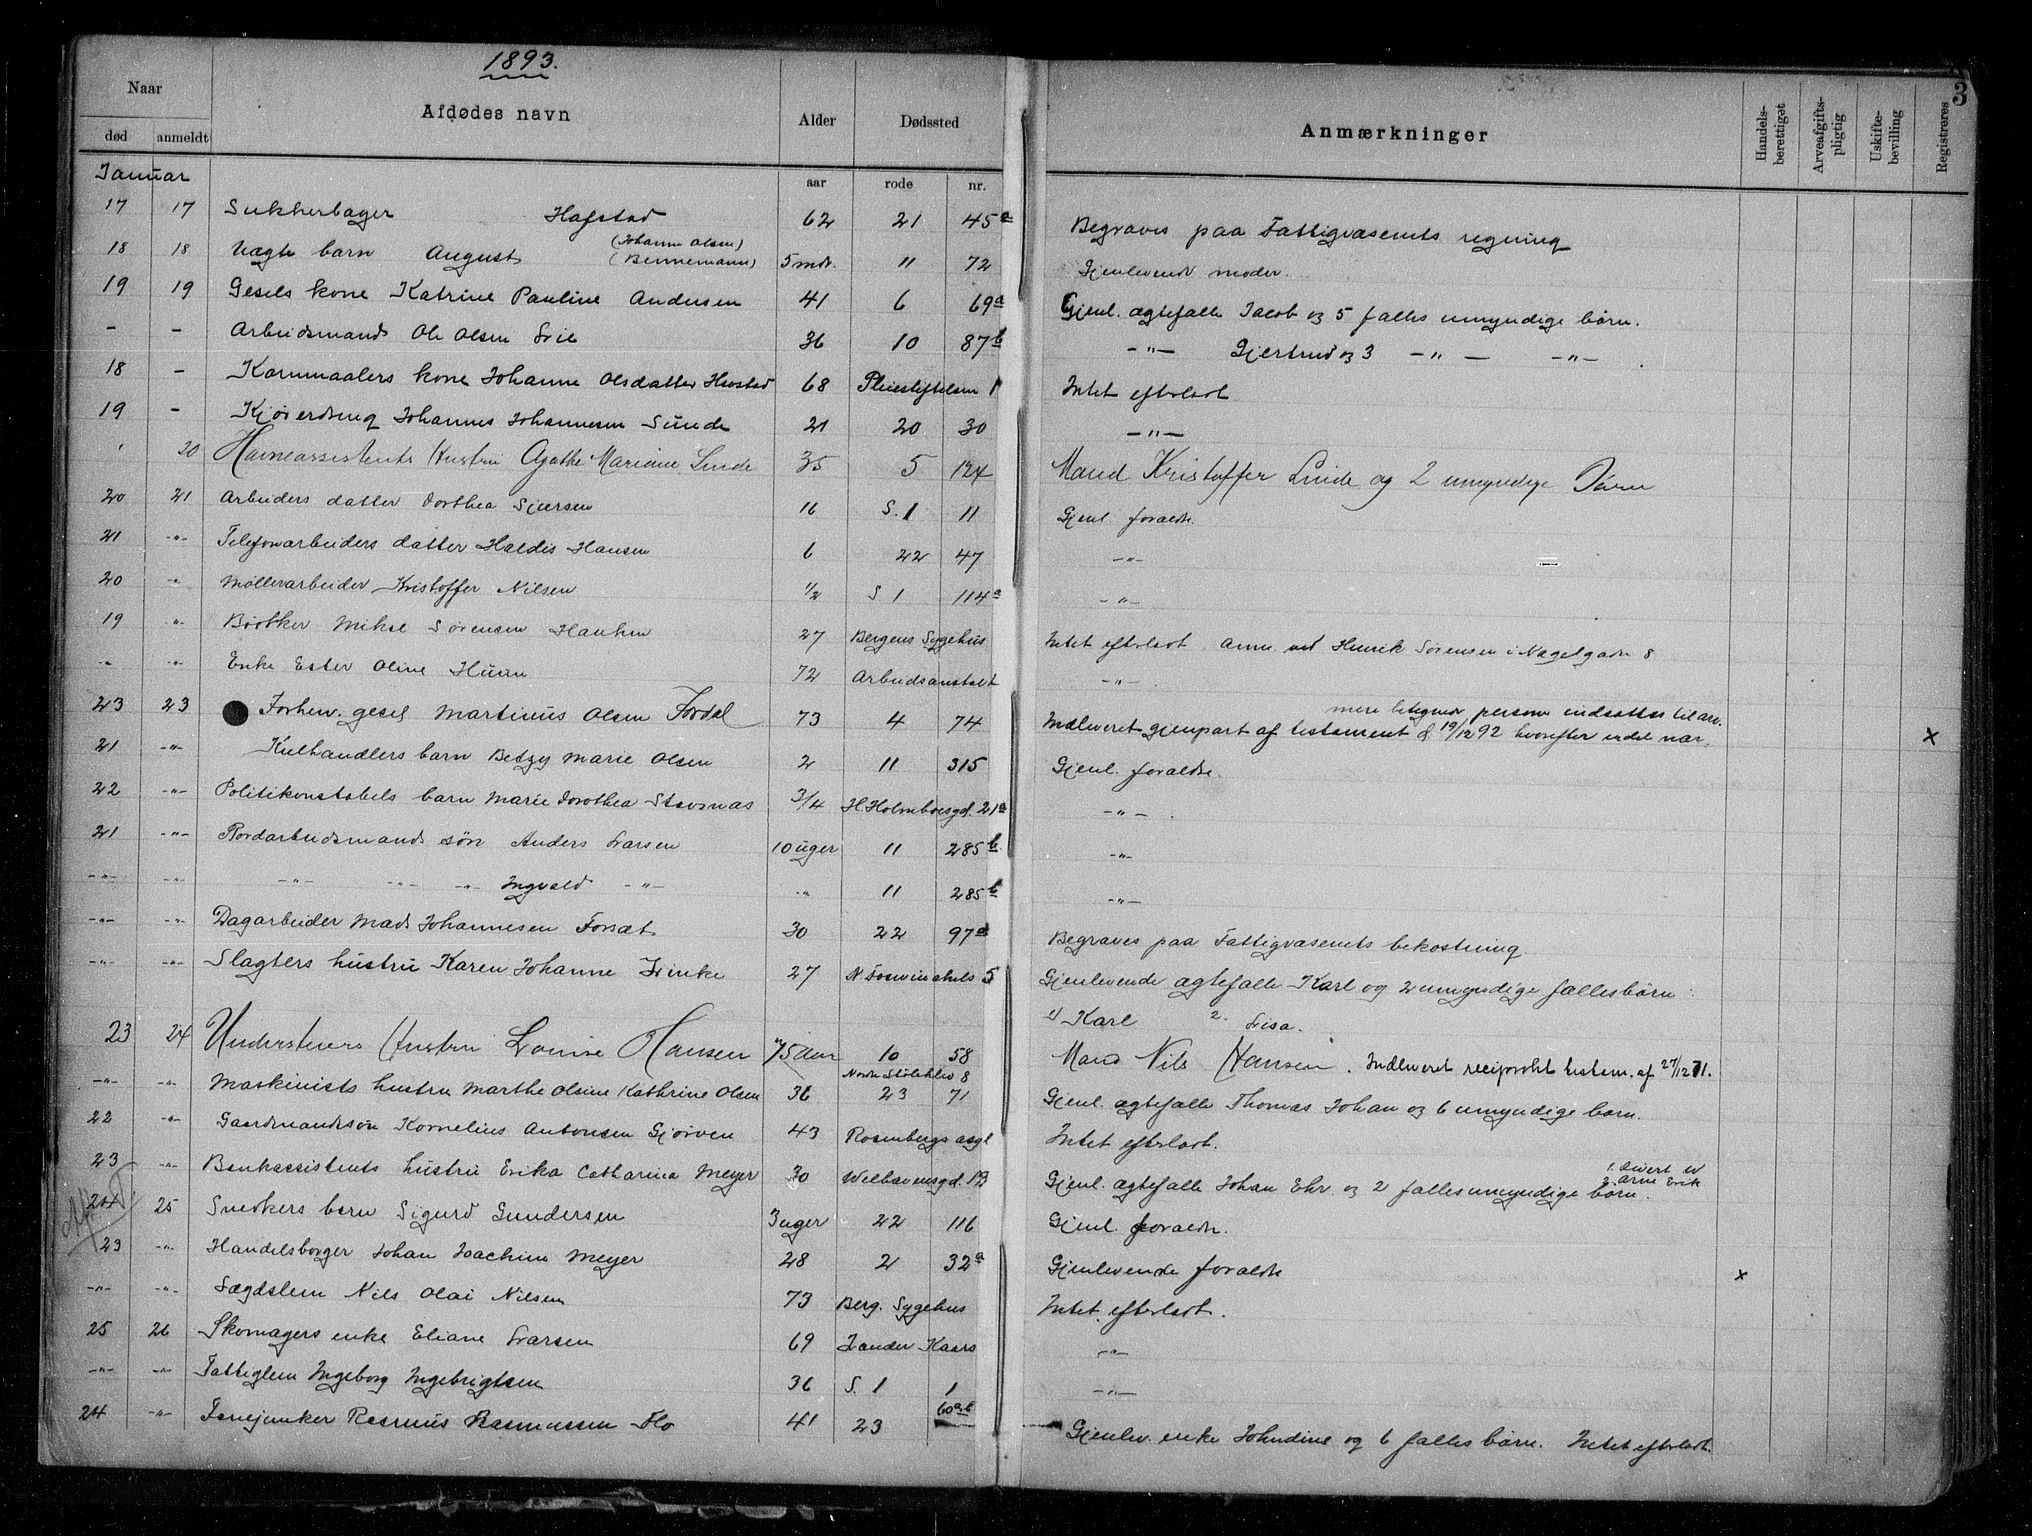 1893.
3
Naar Afdødes navn Alder Dødssted Anmærkninger Handelsberettiget Arveafgiftspligtig Uskiftebevilling Registreres
død anmeldt
Januar aar rode nr.
17 17 Sukkerbager Hafstad 62 21 45a Begraves paa Fattigvæsenets regning
18 18 Uægte barn August (Johanne Olsen) (Bennemann) 5 mdr. 11 72 Gjenlevende moder.
19 19 Gesels kone Katrine Pauline Andersen 41 6 69a Gjenl. ægtefælle Jacob og 5 fælles umyndige børn.
- - Arbeidsmand Ole Olsen 36 10 87b -"- Gjertrud og 3 -"- -"-
18 - Kornmaalers kone Johanne Olsdatter 68 Pleiestiftelsen 1 Intet efterladt
19 - Johannes Johannesen Sunde 21 20 30 -"-
' 20 Havneassistents Hustru Agathe Mariane Linde 35 5 124 Mand Kristoffer Linde og 2 umyndige Børn
20 21 Arbeiders datter Dorthea Sjursen 16 S. 1 11 Gjenl. forældre.
21 -"- Telefonarbeiders datter Haldis Hansen 6 22 47 -"-
20 " Møllerarbeider Kristoffer Nilsen 1/2 S 1 114a -"-
19 " Bødker Mikal Sørensen Hauken 27 Bergens Sygehus Intet efterladt. Anm. ved Henrik Sørensen i Nøgelgaden 8
" " Enke Ester Oline Husen 72 Arbeidsanstalt -"-
23 23 Forhen. gesel Martinus Olsen Fordal 73 4 74 Indleveret gjenpart af testament d 19/12 92 hvorefter endel nær-
mere betegnede personer indsættes til arv. x
21 -"- Kulhandlers barn Betzy Marie Olsen 2 11 315 Gjenl. forældre.
22 -"- Politikonstabels barn Marie Dorothea Stavsnæs 3/4 H. Holmboesgd. 21a -"-
21 -"- Anders Larsen 10 uger 11 285b. -"-
-"- -"- -"- -"- -"- Ingvald -"- -"- 11 285b -"-
-"- -"- Dagarbeider Mads Johannesen 30 22 97a Begraves paa Fattigvæsenets bekostning
-"- -"- Slagters hustru Karen Johanne 27 5 Gjenlevende ægtefælle Karl og 2 umyndige fællesbørn:
1) Karl 2. Lisa.
23 24 Hustru Louise Hansen 75 Aar 10 58 Mand Nils Hansen. Indleveret reciprokt testam. af 27/12 71.
8
-"- -"- Maskinists hustru Marthe Olsine Kathrine Olsen 36 23 71 Gjenl. ægtefælle Thomas Johan og 6 umyndige børn.
22 -"- Gaardmandssøn Kornelius Antonsen Gjørven 43 Rosenbergs asyl Intet efterladt.
23 -"- Bankassistents hustru Erika Catharina Meyer 30 Welhavensgd. 13 Gjenl. ægtefælle Johan Ehr. og 2 fælles umyndige børn. 1. Sivert 2. Arne Erik
24 25 Snedkers barn Sigurd Gundersen 3 uger 22 116 Gjenl. forældre.
23 " Handelsborger Johan Joachim Meyer 28 2 32a Gjenlevende forældre x
-"- -"- Lægdslem Nils Olai Nilsen 73 Berg. Sygehus Intet efterladt.
25 26 Skomagers enke Eliane Larsen 69 Zander Kaars -"-
-"- -"- Fattiglem Ingeborg Ingebrigtsen 36 S. 1 1 -"-
24 -"- Fanejunker Rasmus Rasmussen Flo 41 23 60ab Gjenlev. enke Johndine og 6 fælles børn. Intet efterladt.